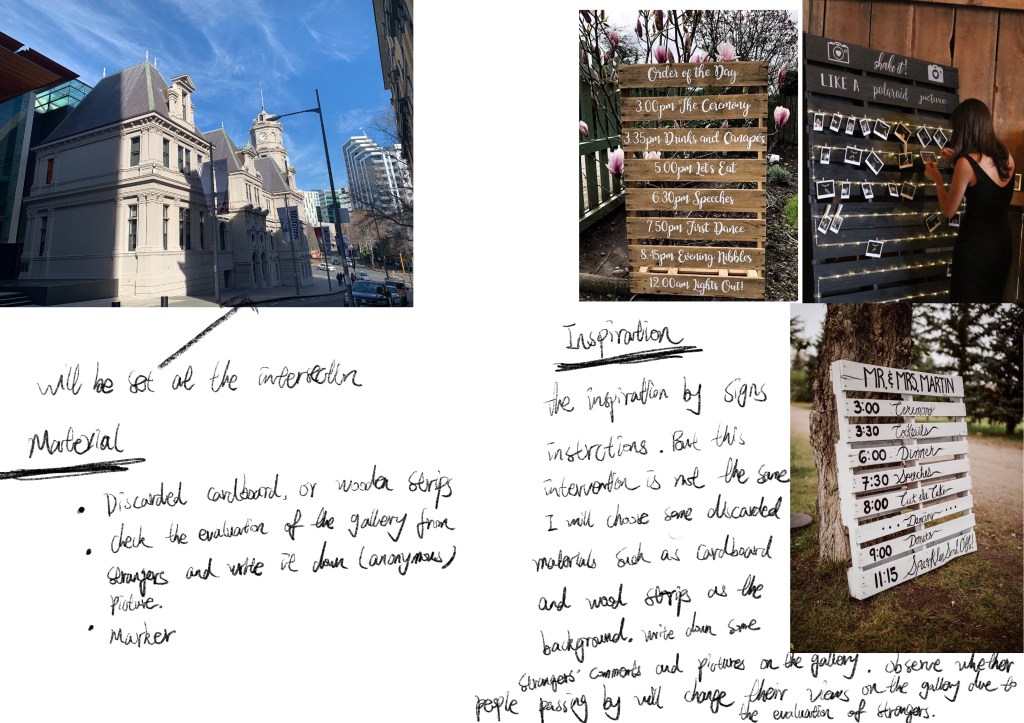 Order of the Day
3.00pm The Ceremony
3.35pm Drinks and Canapes
5.00pm Let's Eat
6.30pm Speeches
7.50pm First Dance
8.45pm Evening Nibbles
12.00am Lights Out!
shake it!
LIKE A polaroid picture
will be set at the intersection
Material
• Discarded cardboard, or wooden strips
• check the evaluation of the gallery from
strangers and write it down (anonymous)
picture.
• Marker
Inspiration
the inspiration by signs
instrctions. But this
intervention is not the same
I will choose some discarded
materials such as cardboard
and wood strips as the
background. write down some
strangers' comments and pictures on the gallery. observe whether
people passing by will change their views on the gallery due to
the evaluation of strangers.
MR. & MRS. MARTIN
3:00 Ceremony
3:30 Cocktails
6:00 Dinner
7:30 Speeches
8:00 Cut the Cake
Dancing
9:00 Donuts
11:15 Sparkler Send Off!